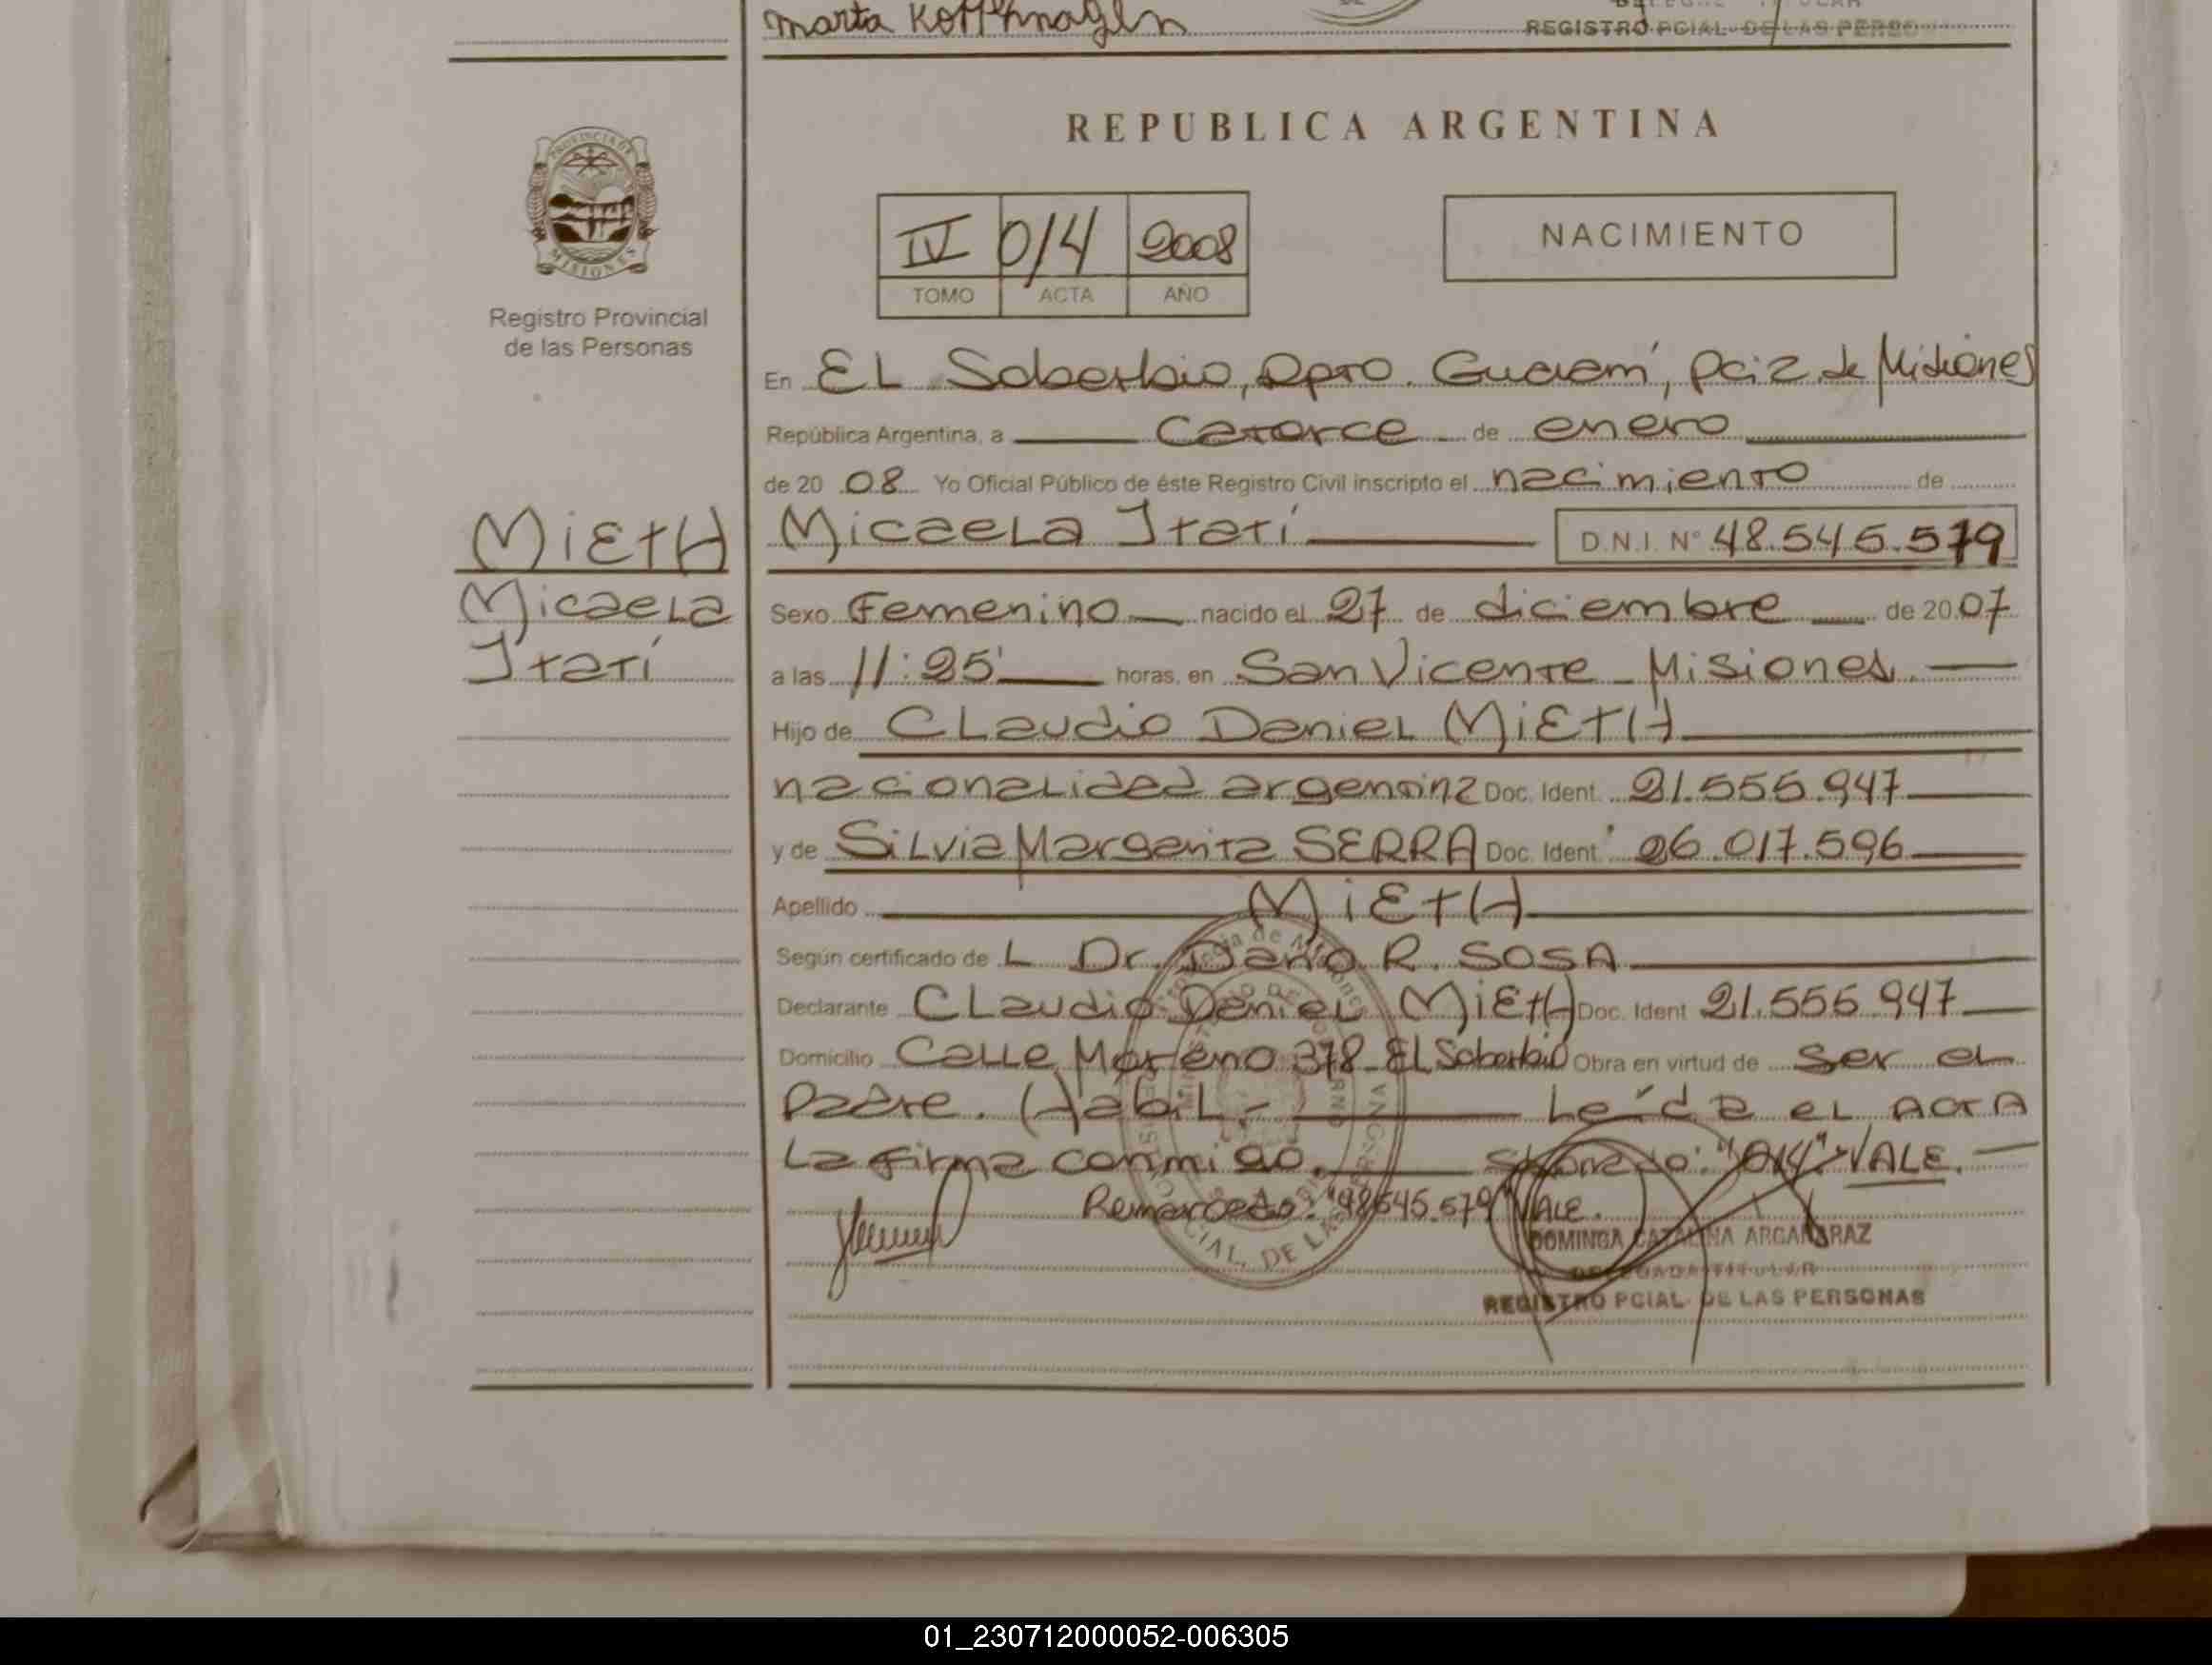 Marta Koffhnagen
REGISTRO PCIAL DE LAS PERSO
REPUBLICA ARGENTINA
PROVINCIA DE
MISIONES
Registro Provincial
de las Personas
IV 014 2008
TOMO ACTA AÑO
NACIMIENTO
En EL Soberbio, Dpto. Guaraní, Pcia de Misiones
República Argentina, a catorce de enero
de 20 08 Yo Oficial Público de éste Registro Civil inscripto el nacimiento de
MiEtH Micaela Itatí D.N.I. N° 48.545.579
Micaela Sexo Femenino nacido el 27 de diciembre de 20 07
Itatí a las 11:25' horas, en San Vicente - Misiones.
Hijo de Claudio Daniel MiEtH
nacionalidad argentina Doc. Ident. 21.555.947
y de Silvia Margarita SERRA Doc. Ident. 26.017.596
Apellido MiEtH
Según certificado de L Dr. Dario R. SOSA
Declarante Claudio Daniel MiEtH Doc. Ident 21.555.947
Domicilio Calle Moreno 378 - El Soberbio Obra en virtud de ser el
Padre. Habil.- Leída el ActA
La firma conmigo. "014" VALE.
Remarcado: "48.545.579" VALE.
DOMINGA CATALINA ARGAÑARAZ
DELEGADA TITULAR
REGISTRO PCIAL. DE LAS PERSONAS
01_230712000052-006305